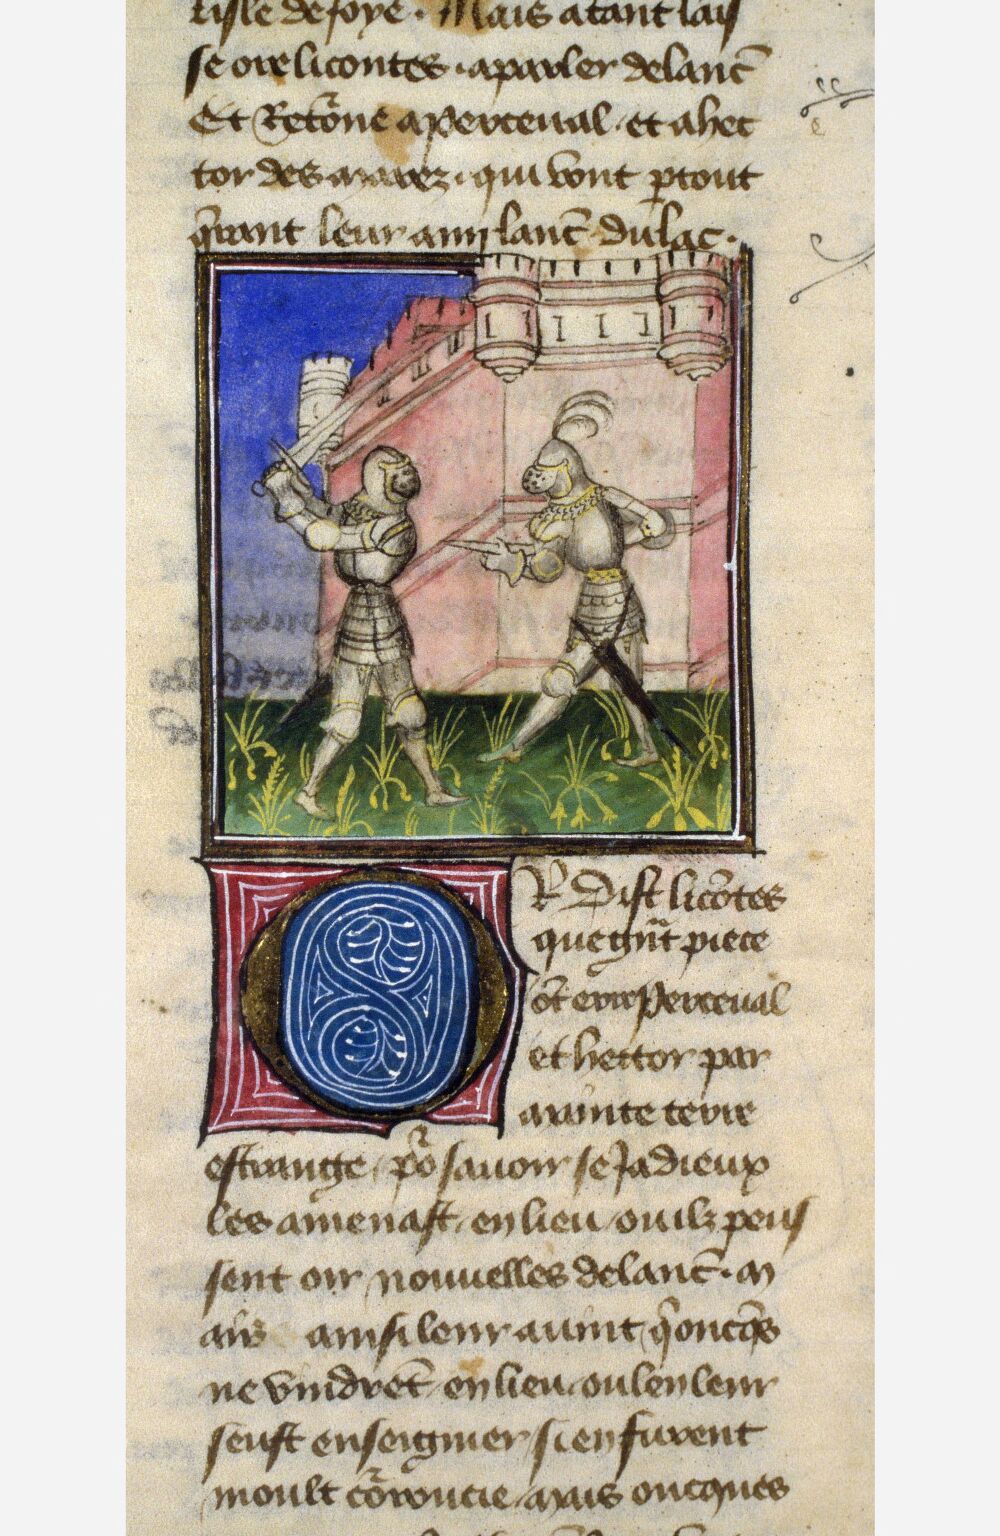 lisle de joye. Mais atant lais
se ore li contes. a parler de lanc̄
Et Retor̄ne a perceual. et a hec
tor des marez. qui vont p̱tout
q̄rant leur amy lanc̄ du lac.
R Dist li cōtes
que gn̄t piece
ōt erre perceual
et hector par
mainte terre
estrange, po᷑ sauoir se Ja dieux
les amenast, en lieu, ou ilz peus
sent oir nouuelles de lanc̄. m
ais ainsi leur auint, q̄ oncq̄s
ne vindrēt, en lieu, ou len leur
seust enseignier, si en furent
moult co᷑roucie, mais oncques